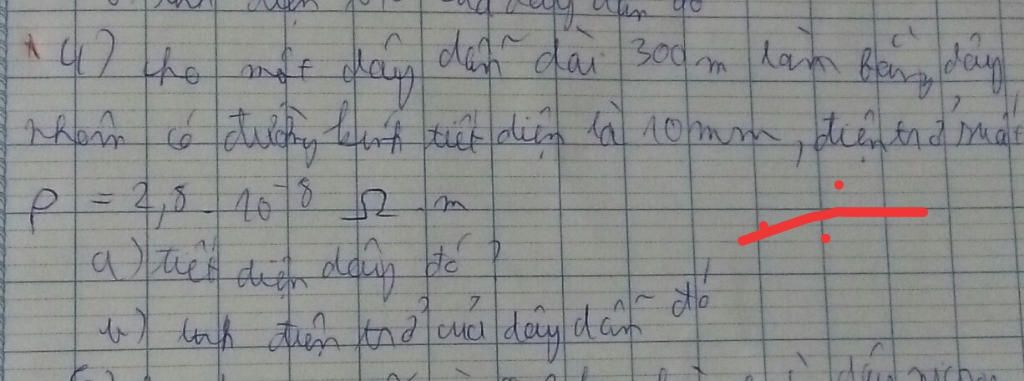 4) Cho một dây dẫn dài 300m làm bằng dây
nhôm có đường kính tiết diện là 10mm, điện trở suất
ρ = 2,8. 10⁻⁸ Ω.m
a) tiết diện dây đó?
b) tính điện trở của dây dẫn đó